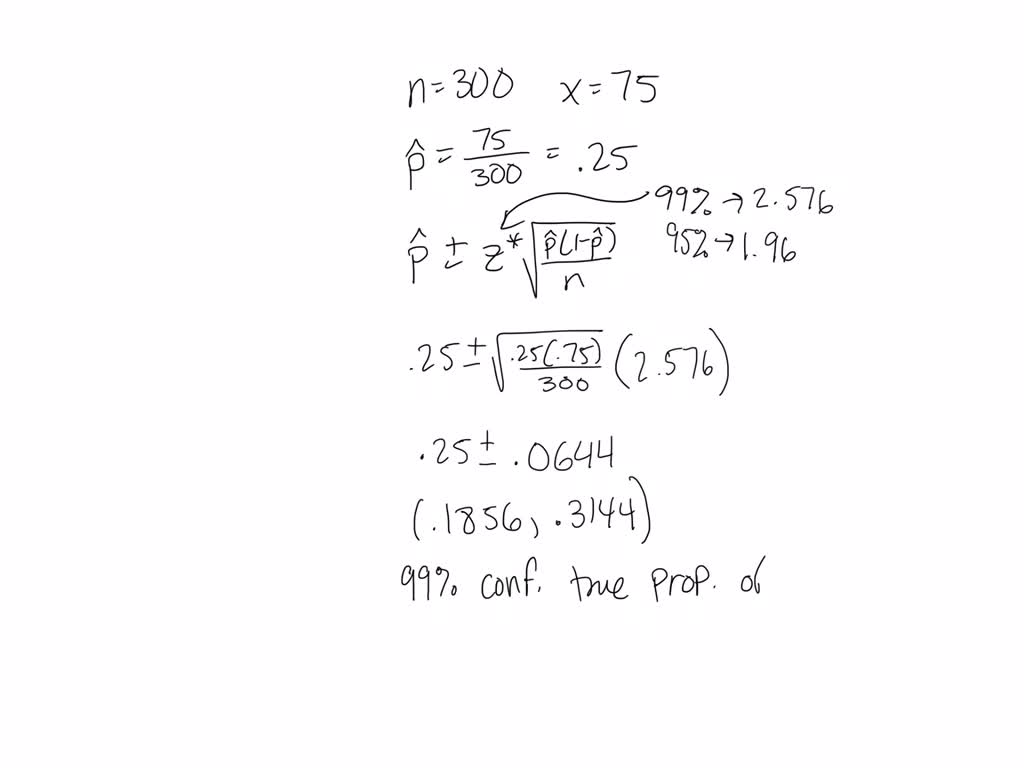 n=300 x=75
p̂ = 75/300 = .25
99% → 2.576
95% → 1.96
p̂ ± z* √(p̂(1-p̂)/n)
.25 ± √(.25(.75)/300) (2.576)
.25 ± .0644
(.1856, .3144)
99% conf. true prop. of